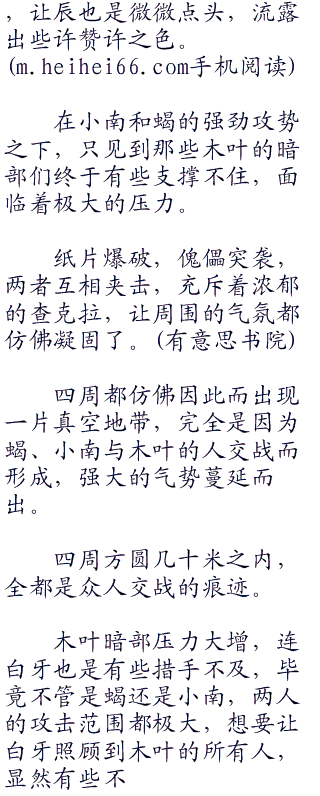 ，让辰也是微微点头，流露
出些许赞许之色。
(m.heihei66.com手机阅读)
在小南和蝎的强劲攻势
之下，只见到那些木叶的暗
部们终于有些支撑不住，面
临着极大的压力。
纸片爆破，傀儡突袭，
两者互相夹击，充斥着浓郁
的查克拉，让周围的气氛都
仿佛凝固了。(有意思书院)
四周都仿佛因此而出现
一片真空地带，完全是因为
蝎、小南与木叶的人交战而
形成，强大的气势蔓延而
出。
四周方圆几十米之内，
全都是众人交战的痕迹。
木叶暗部压力大增，连
白牙也是有些措手不及，毕
竟不管是蝎还是小南，两人
的攻击范围都极大，想要让
白牙照顾到木叶的所有人，
显然有些不